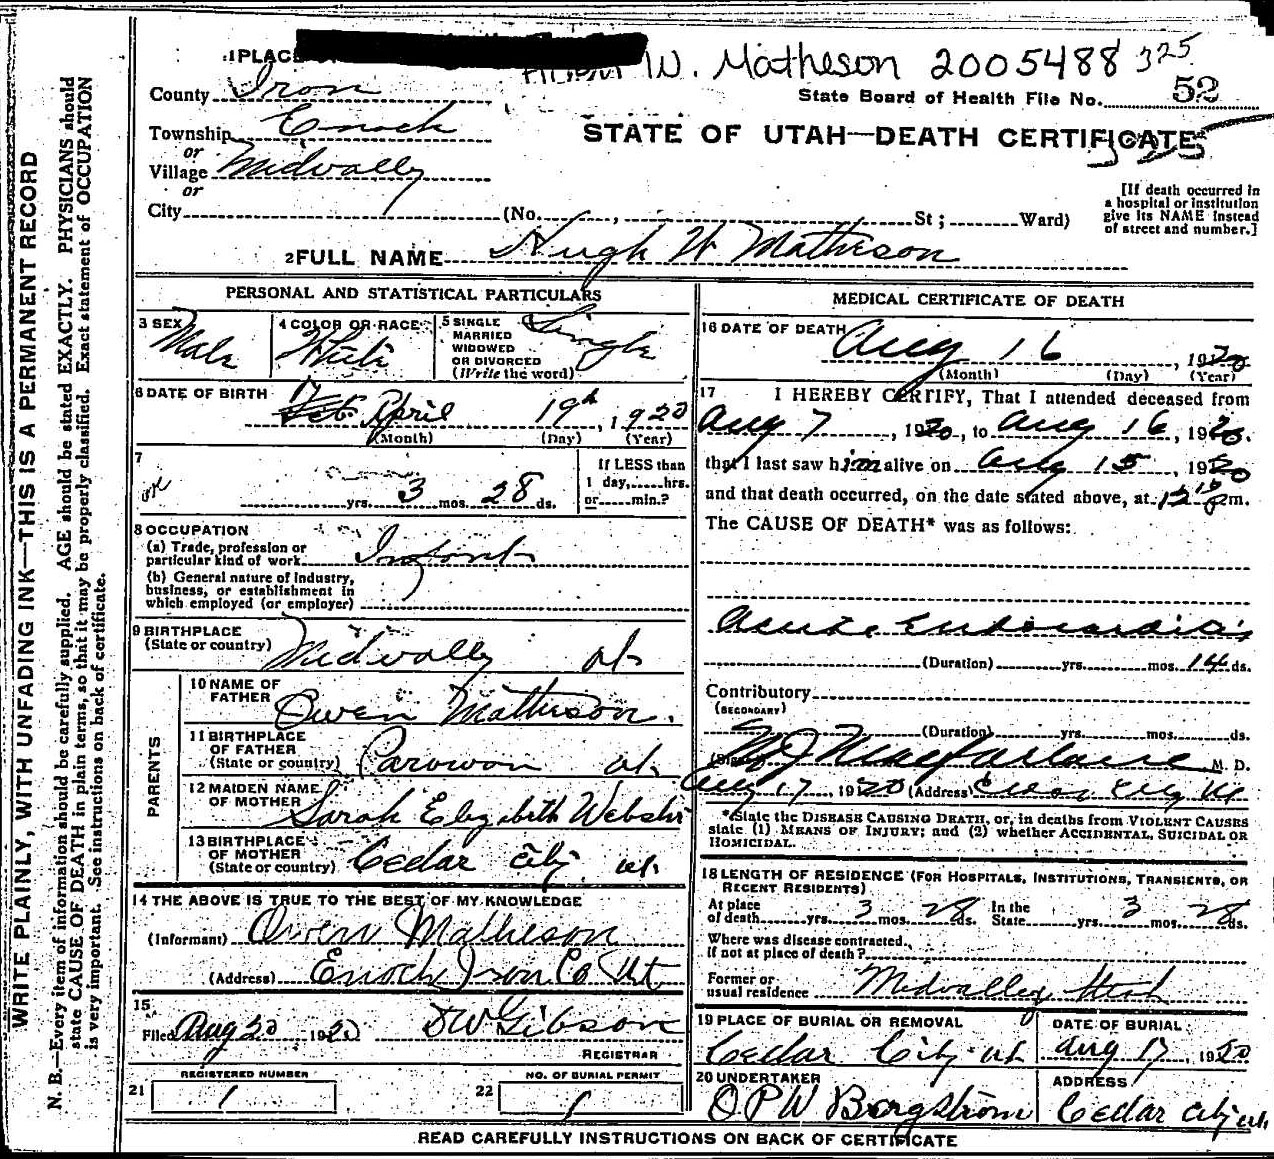 1 PLACE
W. Matheson 2005488 325
County Iron
State Board of Health File No. 52
Township Enoch
STATE OF UTAH—DEATH CERTIFICATE
325
or
Village Midvally
or
City (No. , St ; Ward)
[If death occurred in a hospital or institution give its NAME instead of street and number.]
2 FULL NAME Hugh W Matheson
PERSONAL AND STATISTICAL PARTICULARS
3 SEX Male
4 COLOR OR RACE White
5 SINGLE MARRIED WIDOWED OR DIVORCED (Write the word) Single
6 DATE OF BIRTH
Feb April 19th, 1920
(Month) (Day) (Year)
7
yrs. 3 mos. 28 ds.
If LESS than 1 day, hrs. or min.?
8 OCCUPATION
(a) Trade, profession or particular kind of work Infant
(b) General nature of industry, business, or establishment in which employed (or employer)
9 BIRTHPLACE (State or country) Midvally ut
PARENTS
10 NAME OF FATHER Owen Matheson.
11 BIRTHPLACE OF FATHER (State or country) Parowon ut.
12 MAIDEN NAME OF MOTHER Sarah Elizabeth Webster
13 BIRTHPLACE OF MOTHER (State or country) Cedar City ut.
14 THE ABOVE IS TRUE TO THE BEST OF MY KNOWLEDGE
(Informant) Owen Matheson
(Address) Enoch Iron Co Ut
15
Filed Aug 20 1920 D W Gibson
REGISTRAR
21 REGISTERED NUMBER 1
22 NO. OF BURIAL PERMIT 1
MEDICAL CERTIFICATE OF DEATH
16 DATE OF DEATH
Aug 16, 1920
(Month) (Day) (Year)
17 I HEREBY CERTIFY, That I attended deceased from
Aug 7, 1920, to Aug 16, 1920.
that I last saw him alive on Aug 15, 1920
and that death occurred, on the date stated above, at 12 m.
The CAUSE OF DEATH* was as follows:
Acute Endocarditis
(Duration) yrs. mos. 14 ds.
Contributory
(SECONDARY)
(Duration) yrs. mos. ds.
(Signed) M J Macfarlane M. D.
Aug 17, 1920 (Address) Cedar City Ut
*State the DISEASE CAUSING DEATH, or, in deaths from VIOLENT CAUSES
state (1) MEANS OF INJURY; and (2) whether ACCIDENTAL, SUICIDAL OR
HOMICIDAL.
18 LENGTH OF RESIDENCE (FOR HOSPITALS, INSTITUTIONS, TRANSIENTS, OR
RECENT RESIDENTS)
At place of death yrs. 3 mos. 28 ds. In the State yrs. 3 mos. 28 ds.
Where was disease contracted,
if not at place of death?
Former or usual residence Midvalley Utah
19 PLACE OF BURIAL OR REMOVAL Cedar City ut
DATE OF BURIAL Aug 17, 1920
20 UNDERTAKER O P W Bergstrom
ADDRESS Cedar City ut.
READ CAREFULLY INSTRUCTIONS ON BACK OF CERTIFICATE
WRITE PLAINLY, WITH UNFADING INK—THIS IS A PERMANENT RECORD
N. B.—Every item of information should be carefully supplied. AGE should be stated EXACTLY. PHYSICIANS should
state CAUSE OF DEATH in plain terms, so that it may be properly classified. Exact statement of OCCUPATION
is very important. See instructions on back of certificate.